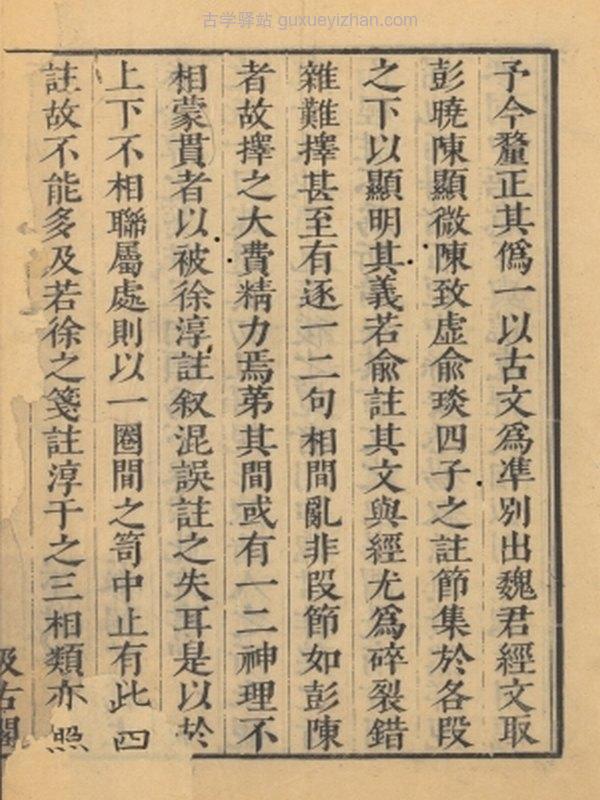 古学驿站 guxueyizhan.com
予今釐正其僞一以古文爲準別出魏君經文取
彭曉陳顯微陳致虛俞琰四子之註節集於各段
之下以顯明其義若俞註其文與經尤爲碎裂錯
雜難擇甚至有逐一二句相間亂非段節如彭陳
者故擇之大費精力焉第其間或有一二神理不
相蒙貫者以被徐淳註叙混誤註之失耳是以於
上下不相聯屬處則以一圈間之笥中止有此四
註故不能多及若徐之箋註淳于之三相類亦照
汲古閣